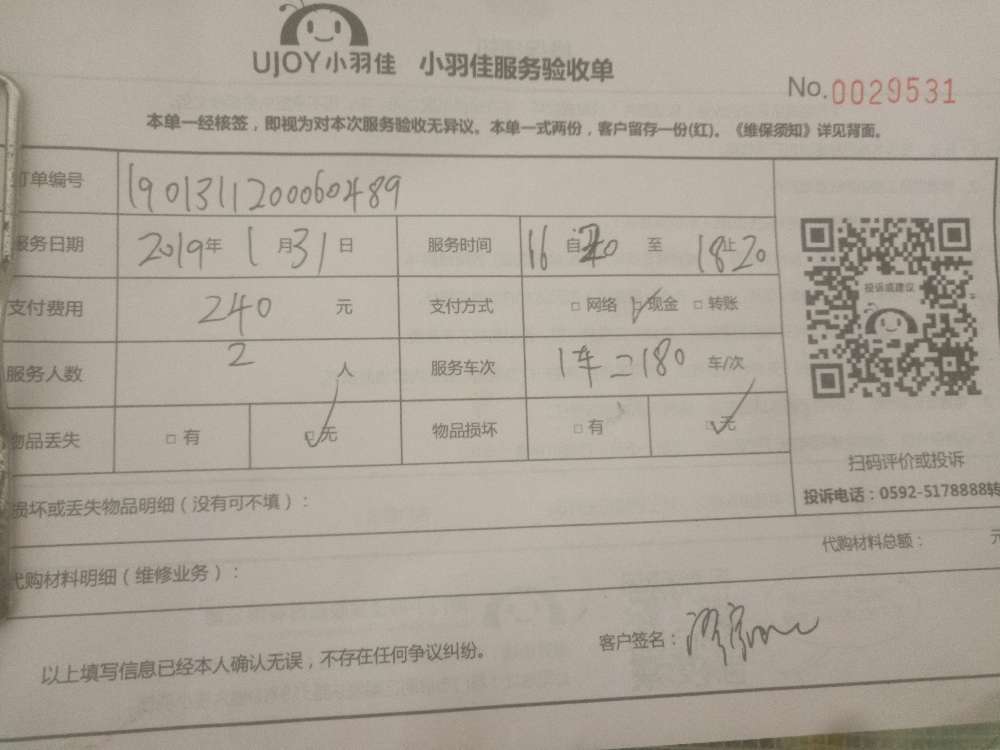 UJOY小羽佳 小羽佳服务验收单
No.0029531
本单一经核签，即视为对本次服务验收无异议。本单一式两份，客户留存一份(红)。《维保须知》详见背面。
订单编号 1901311200060489
服务日期 2019年 1月31日 服务时间 16自 至 18止20
支付费用 240 元 支付方式 □网络 ☑现金 □转账
服务人数 2 人 服务车次 1车二180 车/次
物品丢失 □有 ☑无 物品损坏 □有 ☑无
投诉或建议
扫码评价或投诉
投诉电话：0592-5178888转
损坏或丢失物品明细（没有可不填）：
代购材料明细（维修业务）： 代购材料总额： 元
以上填写信息已经本人确认无误，不存在任何争议纠纷。 客户签名：